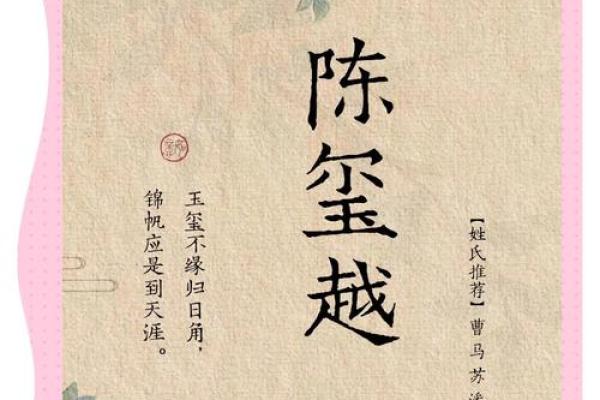 陈玺越
玉玺不缘归日角，
锦帆应是到天涯。
【姓氏推荐】曹 马 苏